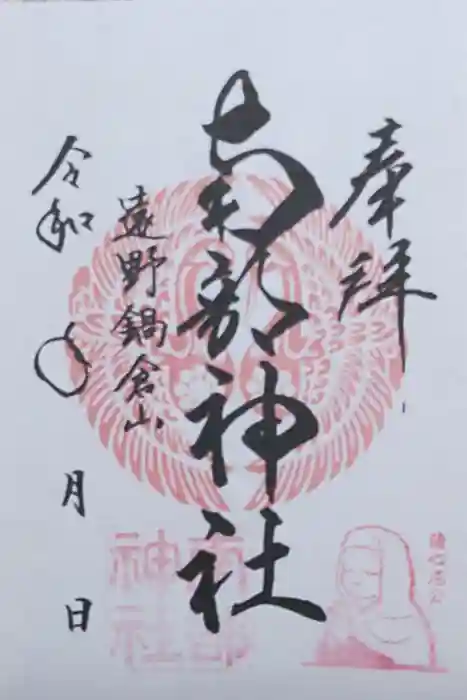 奉拝
南部神社
遠野鍋倉山
令和〇月日
南部
神社